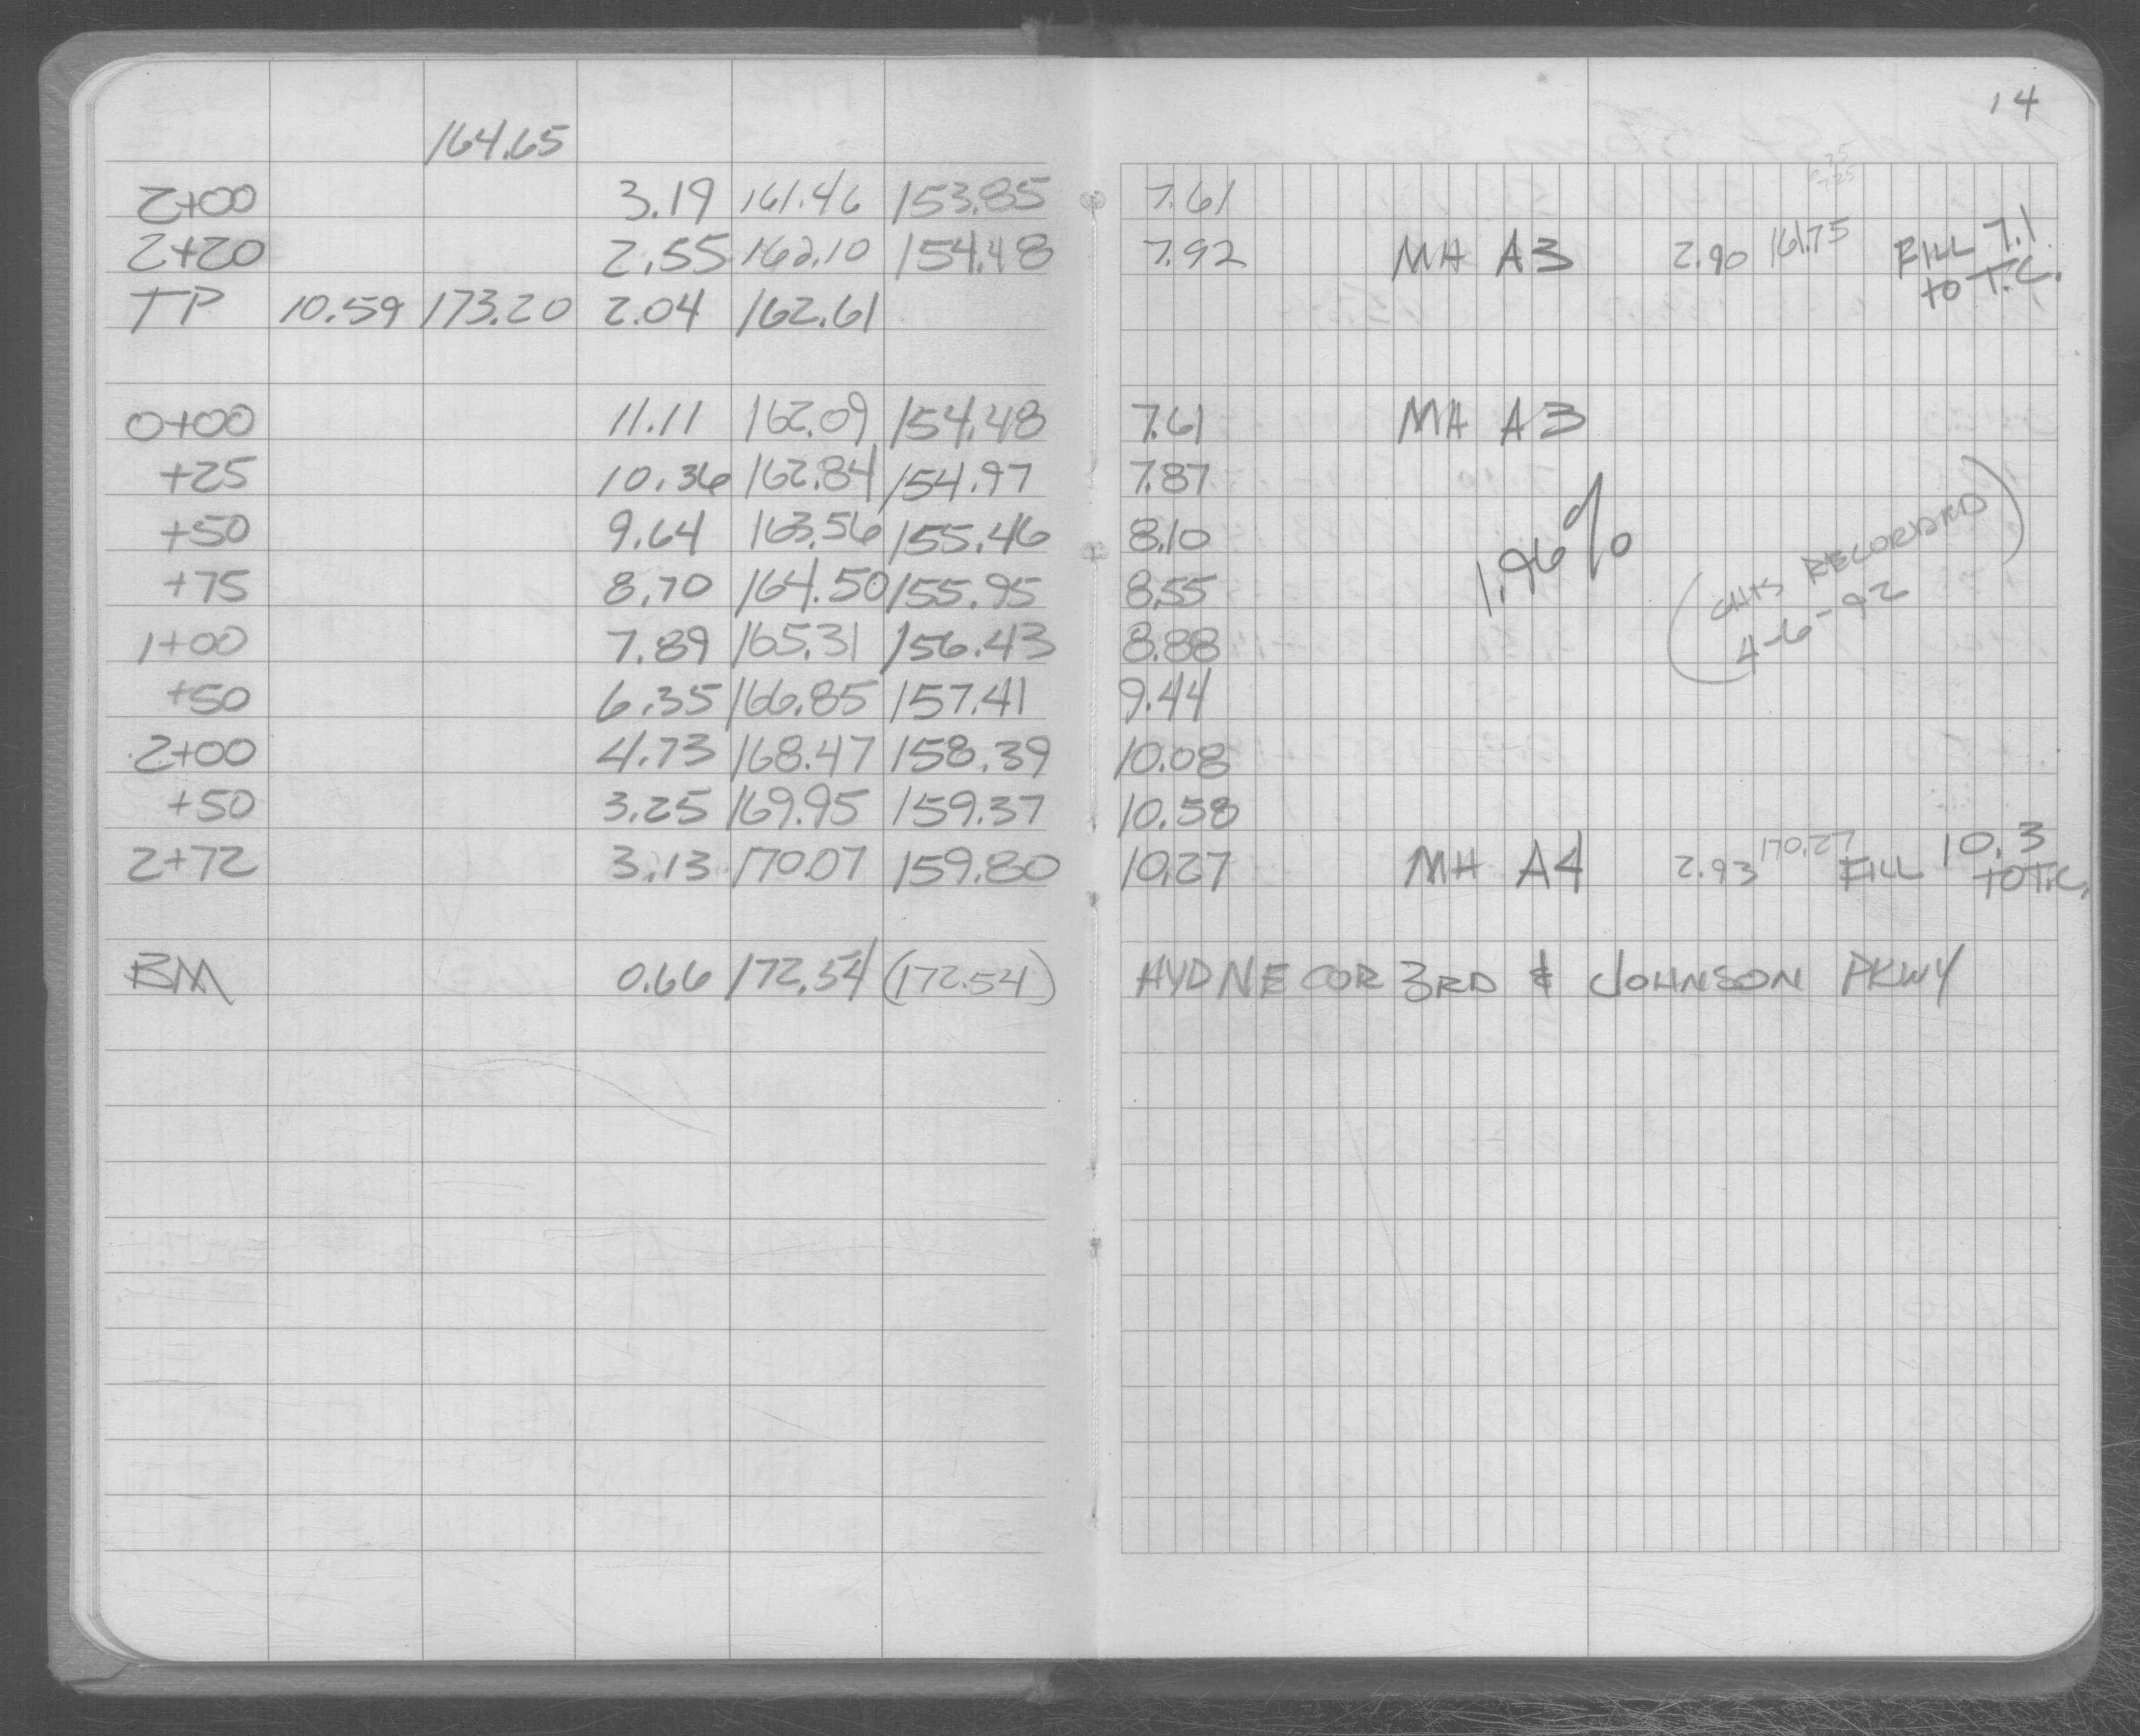 14
164.65
2+00 3.19 161.46 153.85 7.61
2+20 2.55 162.10 154.48 7.92 MH A3 2.90 161.75 FILL 7.1
to T.C.
TP 10.59 173.20 2.04 162.61
0+00 11.11 162.09 154.48 7.61 MH A3
+25 10.36 162.84 154.97 7.87
+50 9.64 163.56 155.46 8.10 1.96%
+75 8.70 164.50 155.95 8.55 (CUTS RECORDED
1+00 7.89 165.31 156.43 8.88 4-6-92)
+50 6.35 166.85 157.41 9.44
2+00 4.73 168.47 158.39 10.08
+50 3.25 169.95 159.37 10.58
2+72 3.13 170.07 159.80 10.27 MH A4 2.93 170.27 FILL 10.3
TO T.C.
BM 0.66 172.54 (172.54) HYD NE COR 3RD & JOHNSON PKWY